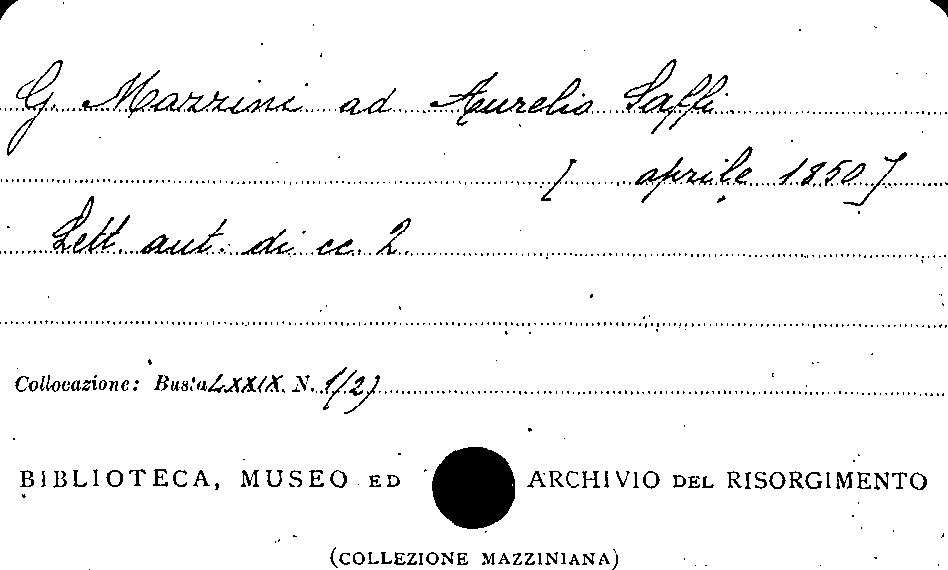 G. Mazzini ad Aurelio Saffi
[ aprile 1850]
Lett. aut. di cc. 2.
Collocazione: Busta LXXIX N. 1/2)
BIBLIOTECA, MUSEO ED ARCHIVIO DEL RISORGIMENTO
(COLLEZIONE MAZZINIANA)